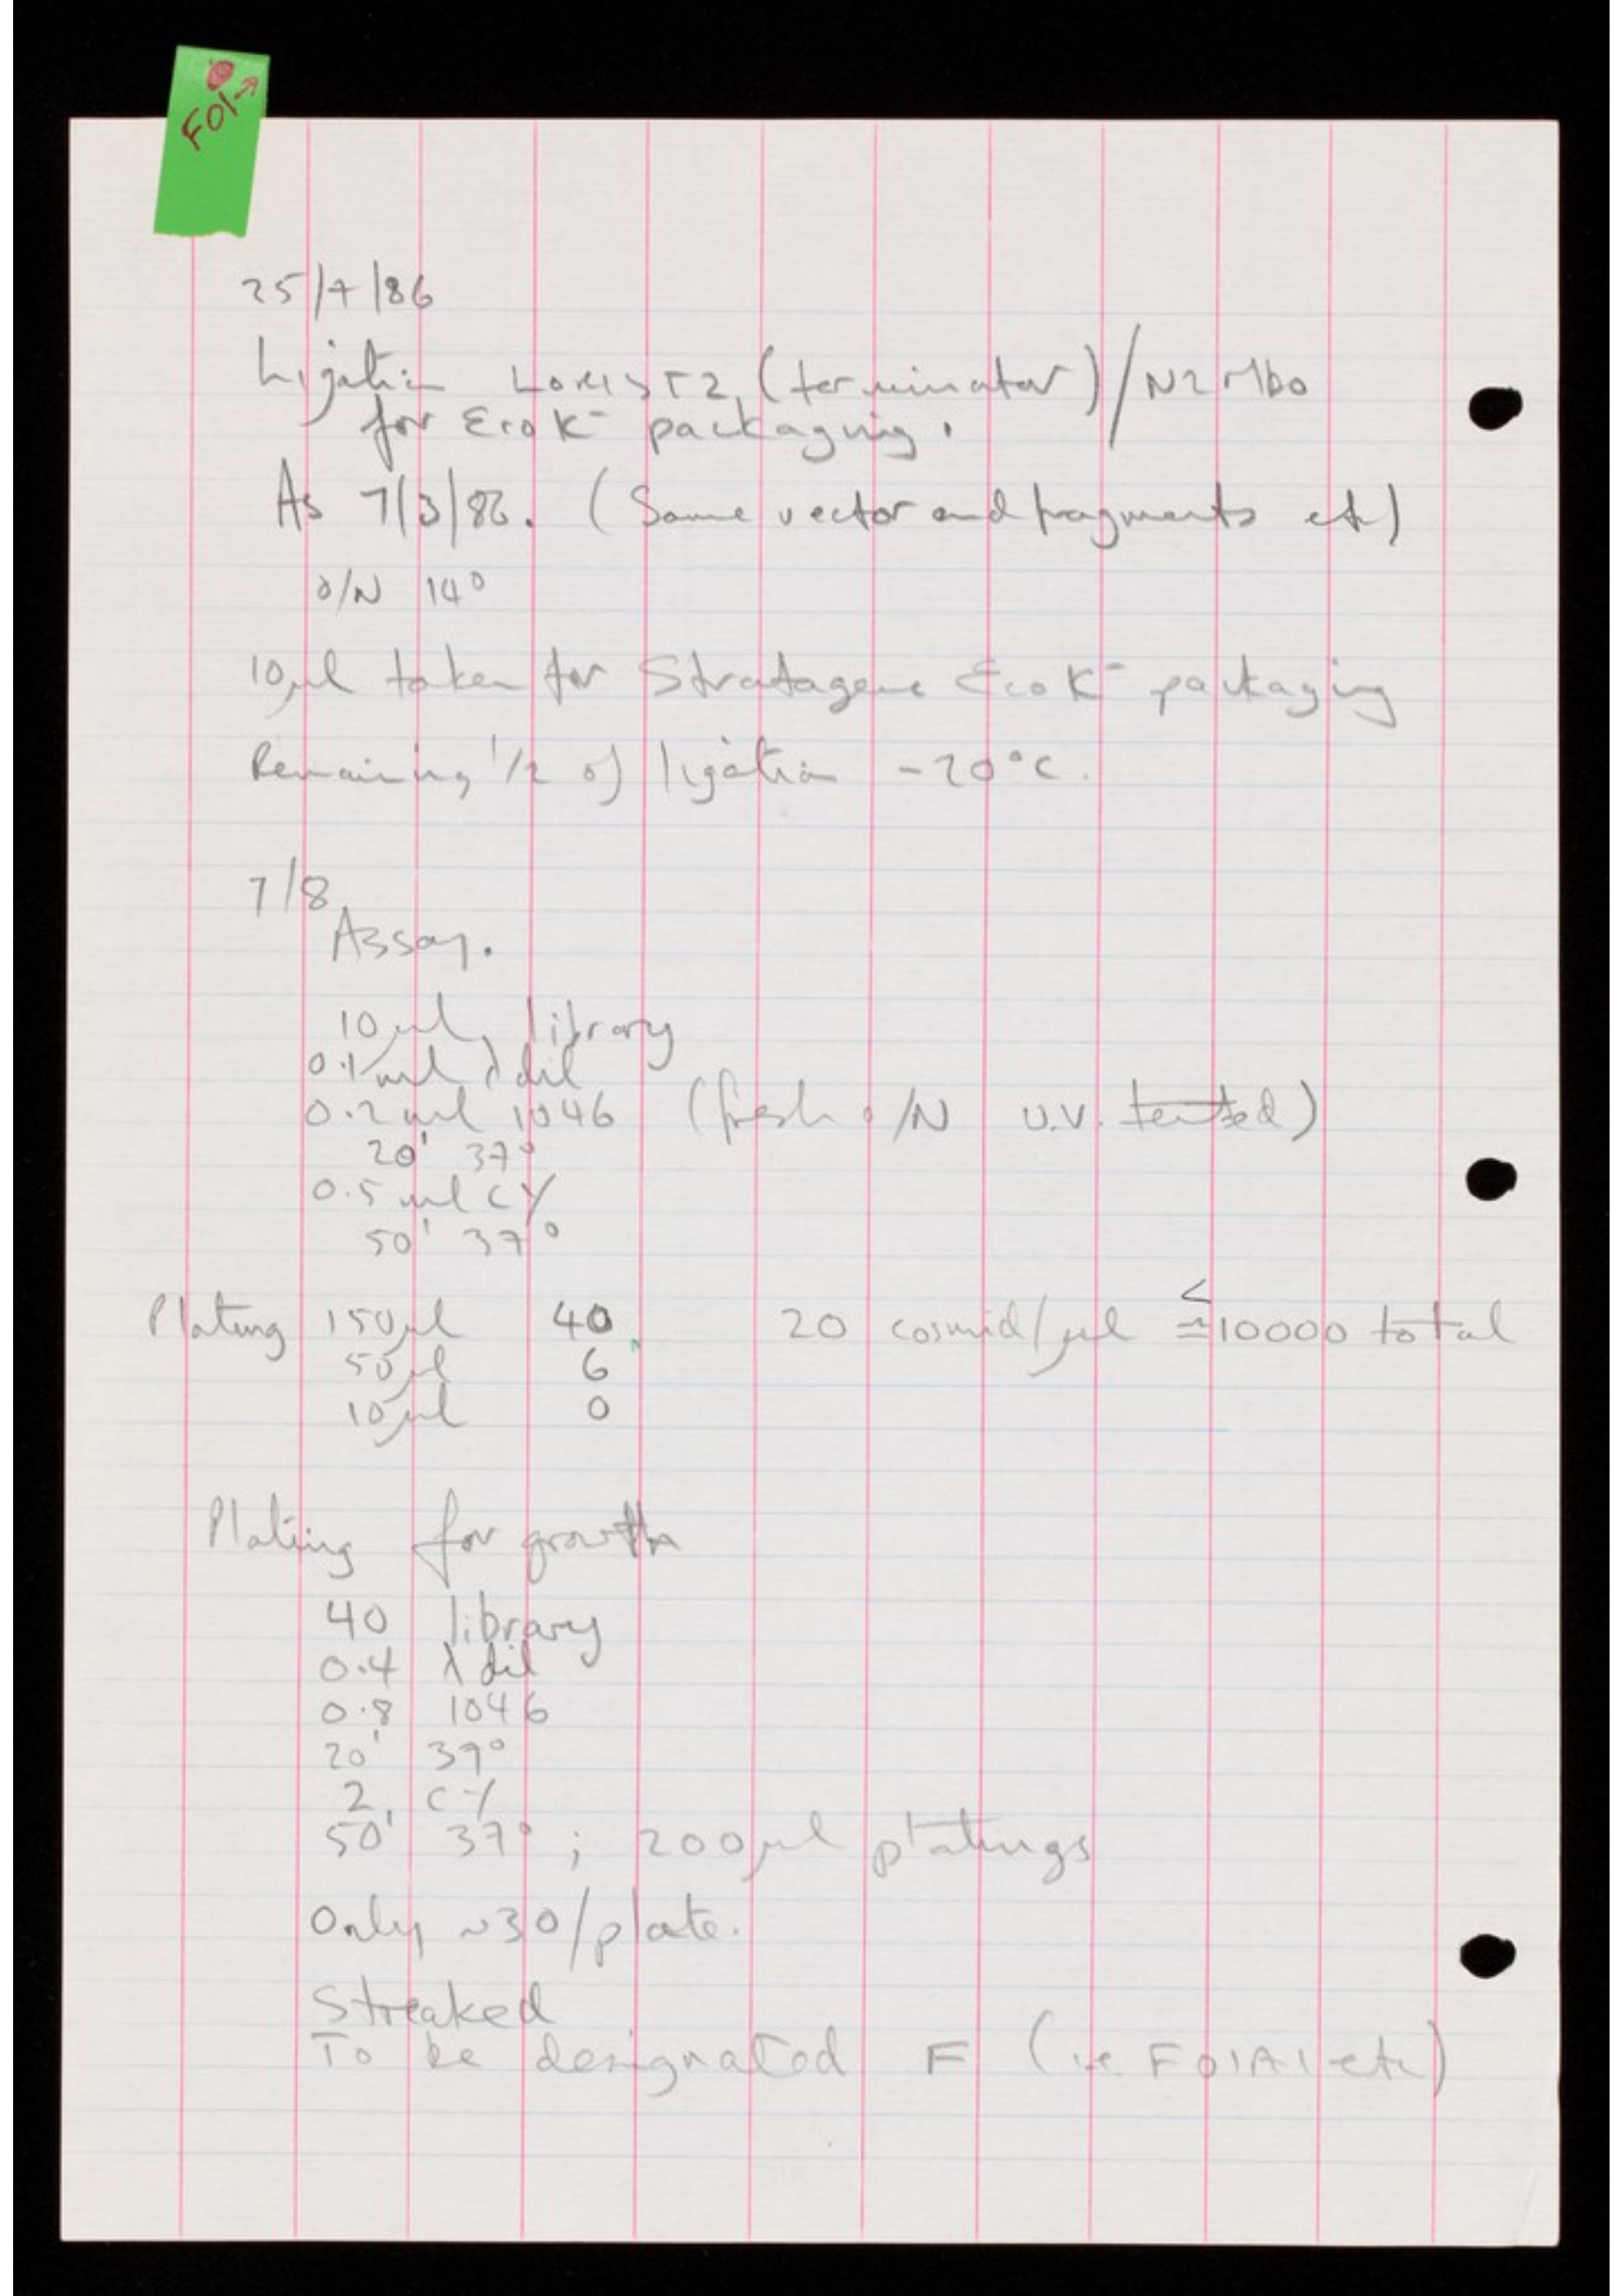 F01→
25/7/86
Ligation Lorist2 (terminator)/N2 Mbo
for EcoK⁻ packaging.
As 7/3/86. (Same vector and fragments etc)
o/N 14°
10μl taken for Stratagene EcoK⁻ packaging
Remaining 1/2 of ligation -20°C.
7/8
Assay.
10μl library
0.1ml λ dil
0.2ml 1046 (fresh o/N U.V. tested)
20' 37°
0.5ml CY
50' 37°
Plating 150μl 40 20 cosmid/μl ≤≃10000 total
50μl 6
10μl 0
Plating for growth
40 library
0.4 λ dil
0.8 1046
20' 37°
2 CY
50' 37° ; 200μl platings
Only ~30/plate.
Streaked
To be designated F (i.e. F01A1 etc)